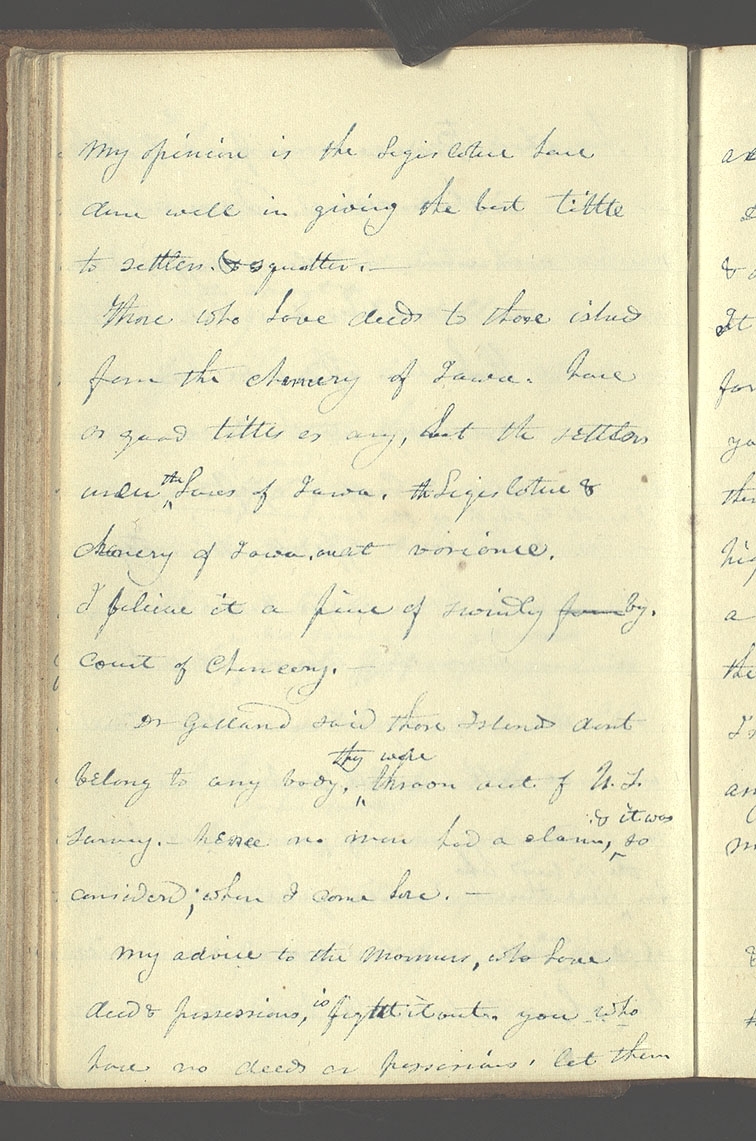 My opinion is the Legislature have
done well in giving the best tittle
to settlers. & squatters. —
Those who have deeds to those islands
from the chancery of Iowa. have
as good tittles as any, but the settlers
under the Laws of Iowa. the Legislature &
chancery of Iowa. are at varience.
I believe it a piece of swindling by.
court of Chancery. —
Dr Galland said those Islands dont
belong to any body, they were thrown out of U.S.
survey. — hence no man had a claim, & it was so
considered; when I come here. —
My advice to the Mormons, who have
deeds & possessions, is fight it out. you who
have no deeds or possessions, let them
a
&
It
for
yo
the
hi
a
the
an
m